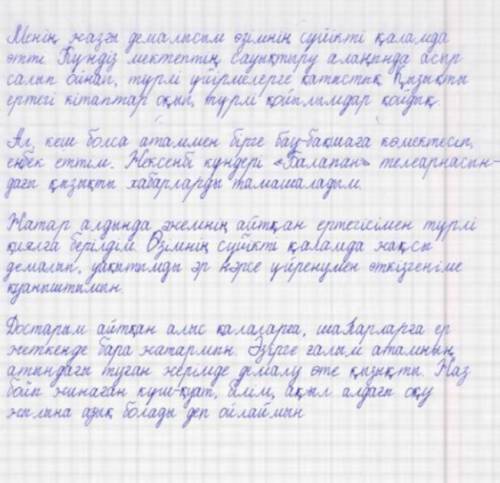 Менің жазғы демалысым өзімнің сүйікті қаламда
өтті. Күндіз мектептің сауықтыру алаңында асыр
салып ойнап, түрлі үйірмелерге қатыстық. Қызықты
ертегі кітаптар оқып, түрлі қойылымдар қойдық.
Ал, кеш болса атаммен бірге бау-бақшаға көмектесіп,
еңбек еттім. Жексенбі күндері «Балапан» телеарнасын-
дағы қызықты хабарларды тамашаладым.
Жатар алдында әжемнің айтқан ертегісімен түрлі
қиялға берілдім. Өзімнің сүйікті қаламда жақсы
демалып, уақытымды әр нәрсе үйренумен өткізгеніме
қуаныштымын.
Достарым айтқан алыс қалаларға, шаһарларға ер
жеткенде бара жатармын. Әзірге ғалым атамның
атындағы туған жерімде демалу өте қызықты. Жаз
бойы жинаған күш-қуат, білім, ақыл алдағы оқу
жылына азық болады деп ойлаймын